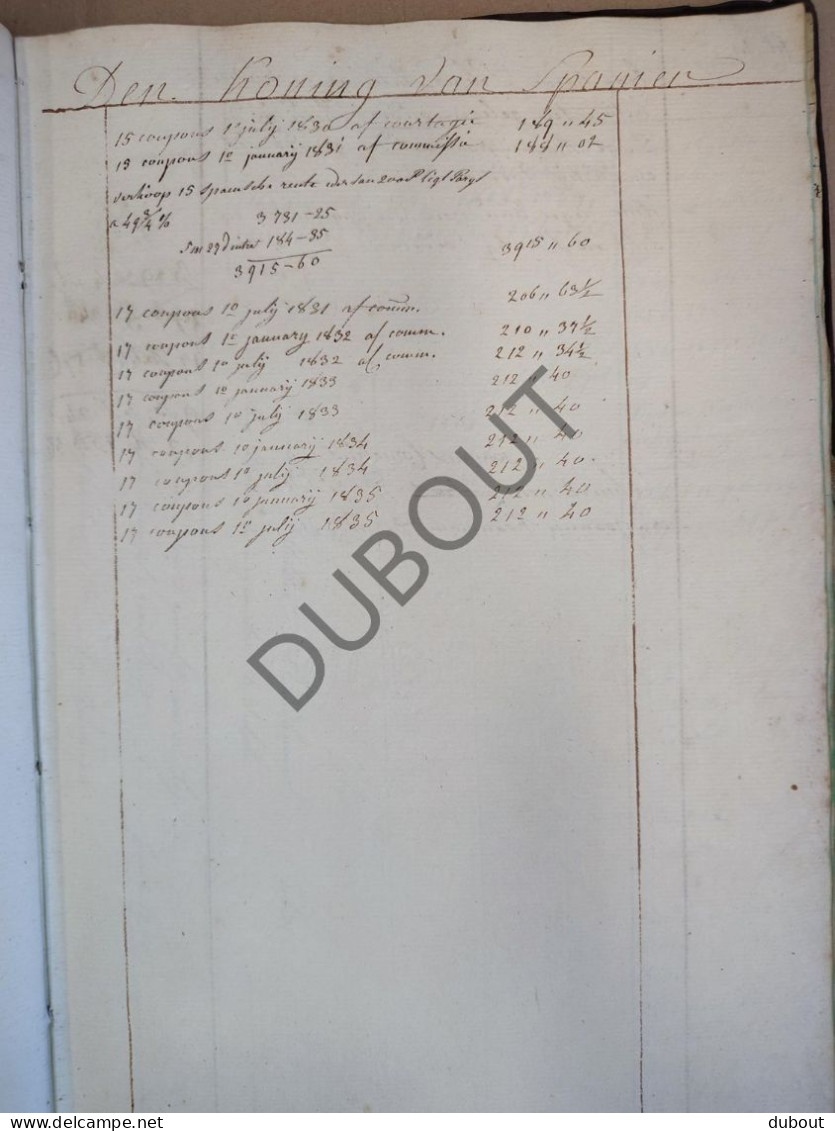 Den Koning van Spanien
15 coupons 1e july 1830 af courtagie 189 " 45
15 coupons 1e january 1831 af commissie 188 " 02
verkoop 15 spaensche rente
a 49 3/4 % 3731-25
184-35
3915-60 3915 " 60
17 coupons 1e july 1831 af comm. 206 " 63 1/2
17 coupons 1e january 1832 af comm. 210 " 37 1/2
17 coupons 1e july 1832 af comm. 212 " 34 1/2
17 coupons 1e january 1833 212 " 40
17 coupons 1e july 1833 212 " 40
17 coupons 1e january 1834 212 " 40
17 coupons 1e july 1834 212 " 40
17 coupons 1e january 1835 212 " 40
17 coupons 1e july 1835 212 " 40
DUBOUT
delcampe.net
dubout